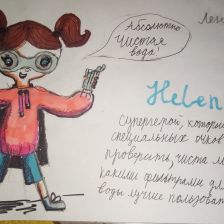 Абсолютно
чистая
вода!
Лега
Helen
Супергерой, который
специальных очков
проверить, чиста ли
какими фильтрами для
воды лучше пользоват